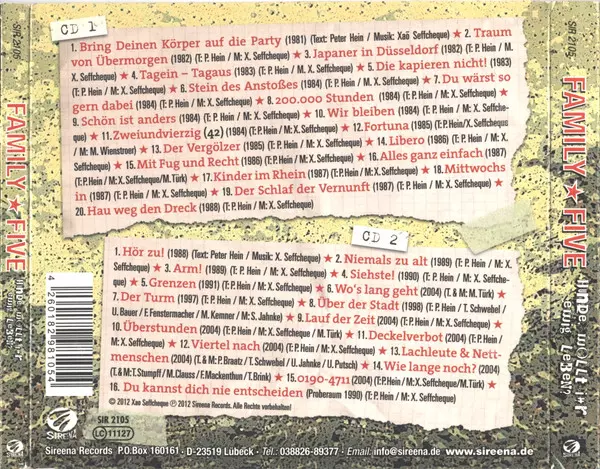 CD 1
1. Bring Deinen Körper auf die Party (1981) (Text: Peter Hein / Musik: Xaõ Seffcheque) ★ 2. Traum
von Übermorgen (1982) (T: P. Hein / M: X. Seffcheque) ★ 3. Japaner in Düsseldorf (1982) (T: P. Hein /
M: X. Seffcheque) ★ 4. Tagein - Tagaus (1983) (T: P. Hein / M: X. Seffcheque) ★ 5. Die kapieren nicht! (1983)
(T: P. Hein / M: X. Seffcheque) ★ 6. Stein des Anstoßes (1984) (T: P. Hein / M: X. Seffcheque) ★ 7. Du wärst so
gern dabei (1984) (T: P. Hein / M: X. Seffcheque) ★ 8. 200.000 Stunden (1984) (T: P. Hein / M: X. Seffcheque) ★
9. Schön ist anders (1984) (T: P. Hein / M: X. Seffcheque) ★ 10. Wir bleiben (1984) (T: P. Hein / M: X. Seff-
cheque) ★ 11. Zweiundvierzig (42) (1984) (T: P. Hein / M: X. Seffcheque) ★ 12. Fortuna (1985) (T: P.Hein/X. Seffcheque
/ M: M. Wienstroer) ★ 13. Der Vergölzer (1985) (T: P. Hein / M: X. Seffcheque) ★ 14. Libero (1986) (T: P. Hein / M: X.
Seffcheque) ★ 15. Mit Fug und Recht (1986) (T: P. Hein / M: X. Seffcheque) ★ 16. Alles ganz einfach (1987)
(T: P. Hein / M: X. Seffcheque/M.Türk) ★ 17. Kinder im Rhein (1987) (T: P. Hein / M: X. Seffcheque) ★ 18. Mittwochs
in (1987) (T: P. Hein / M: X. Seffcheque) ★ 19. Der Schlaf der Vernunft (1987) (T: P. Hein / M: X. Seffcheque) ★
20. Hau weg den Dreck (1988) (T: P. Hein / M: X. Seffcheque)
CD 2
1. Hör zu! (1988) (Text: Peter Hein / Musik: X. Seffcheque) ★ 2. Niemals zu alt (1989) (T: P. Hein / M: X. Seffcheque)
★ 3. Arm! (1989) (T: P. Hein / M: X. Seffcheque) ★ 4. Siehste! (1990) (T: P. Hein / M: X. Seffcheque)
★ 5. Grenzen (1991) (T: P. Hein / M: X. Seffcheque) ★ 6. Wo's lang geht (2004) (T: & M: M. Türk) ★
7. Der Turm (1997) (T: P. Hein / M: X. Seffcheque) ★ 8. Über der Stadt (1998) (T: P. Hein / T. Schwebel /
U. Bauer / F. Fenstermacher / M. Kemner / M: S. Jahnke) ★ 9. Lauf der Zeit (2004) (T: P. Hein / M: X. Seffcheque) ★
10. Überstunden (2004) (T: P. Hein / M: X. Seffcheque/M. Türk) ★ 11. Deckelverbot (2004) (T: P. Hein / M: X.
Seffcheque) ★ 12. Viertel nach (2004) (T: P. Hein / M: X. Seffcheque) ★ 13. Lachleute & Nett-
menschen (2004) (T: & M: P. Braatz / T. Schwebel / U. Jahnke / U. Putsch) ★ 14. Wie lange noch? (2004)
(T: & M: T. Stumpff / M. Clauss / F. Mackenthun / T. Brink) ★ 15. 0190-4711 (2004) (T: P. Hein / M: X. Seffcheque) ★
16. Du kannst dich nie entscheiden (Proberaum 1990) (T: P. Hein / M: X. Seffcheque)
© 2012 Xao Seffcheque ℗ 2012 Sireena Records. Alle Rechte vorbehalten!
4 260182 981054
SIREENA
SIR 2105
LC 11127
Sireena Records P.O.Box 160161 · D-23519 Lübeck · Tel.: 038826-89377 · Email: info@sireena.de · www.sireena.de
SIR 2105
FAMILY ★ FIVE
SIREENA
SIR 2105
FAMILY ★ FIVE
SIREENA